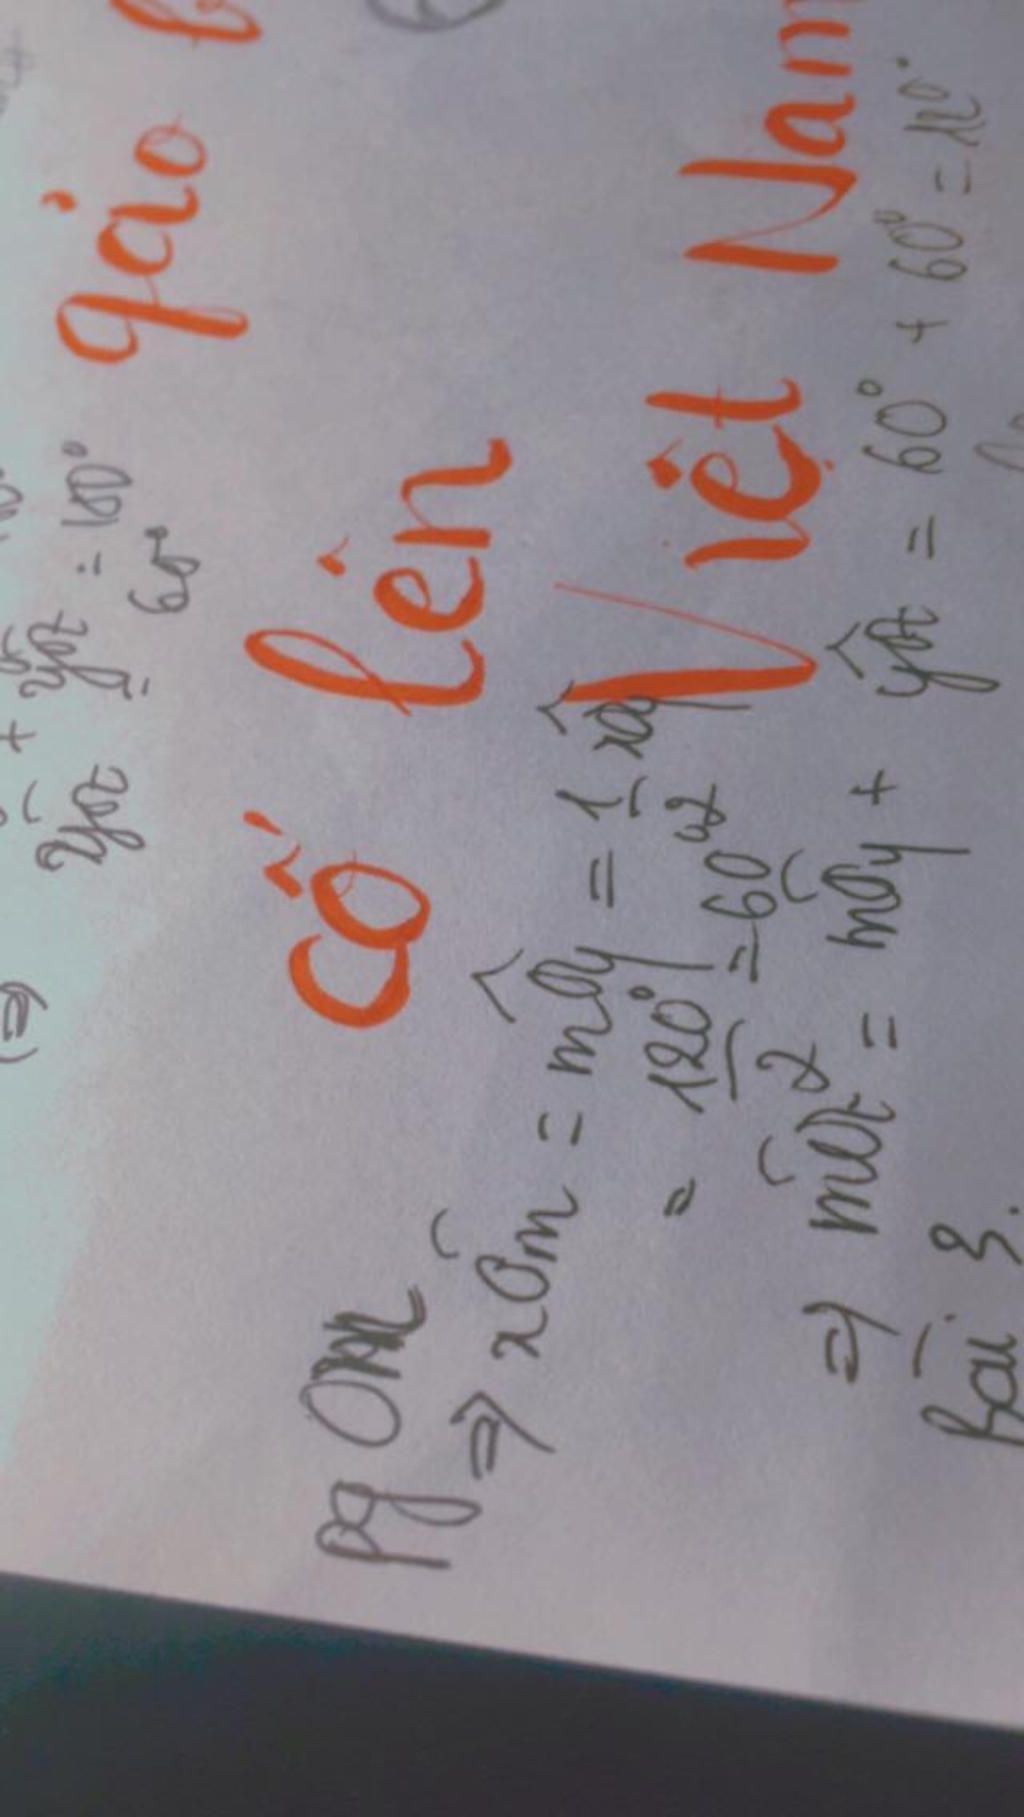 + yOt = 180°
yOt = 60°
gạo
Cố lên
Việt Nam
pg Om
⇒ xOm = mOy = 1/2 xOy
= 120°/2 = 60°
⇒ mOt = mOy + yOt = 60° + 60° = 120°
Bài 3.